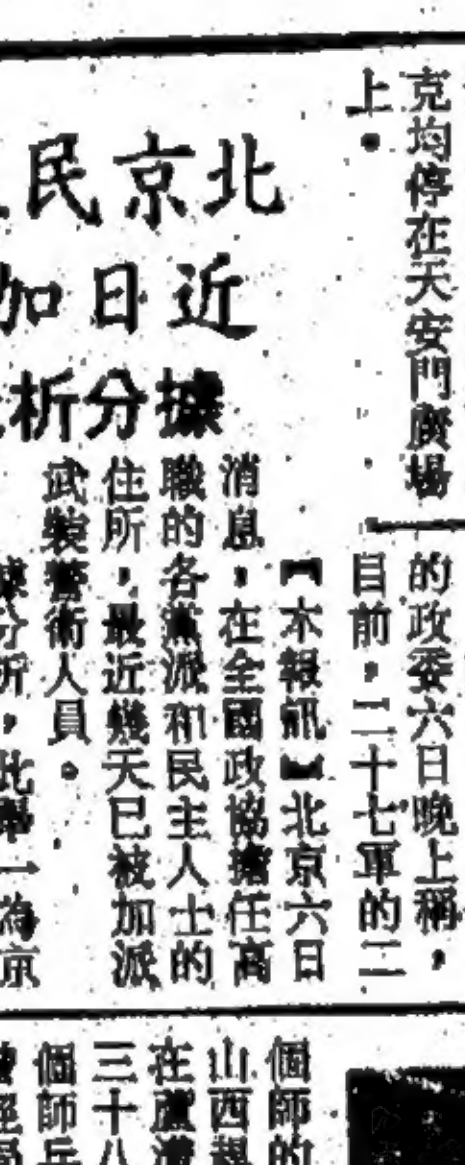 克均停在天安門廣場
上。
的政委六日晚上稱，
目前，二十七軍的二
北京民
近日加
據分析
【本報訊】北京六日
消息，在全國政協擔任高
職的各黨派和民主人士的
住所，最近幾天已被加派
武裝警衛人員。
據分析，此舉一為京
個師的
山西
在蘆
三十八
個師兵